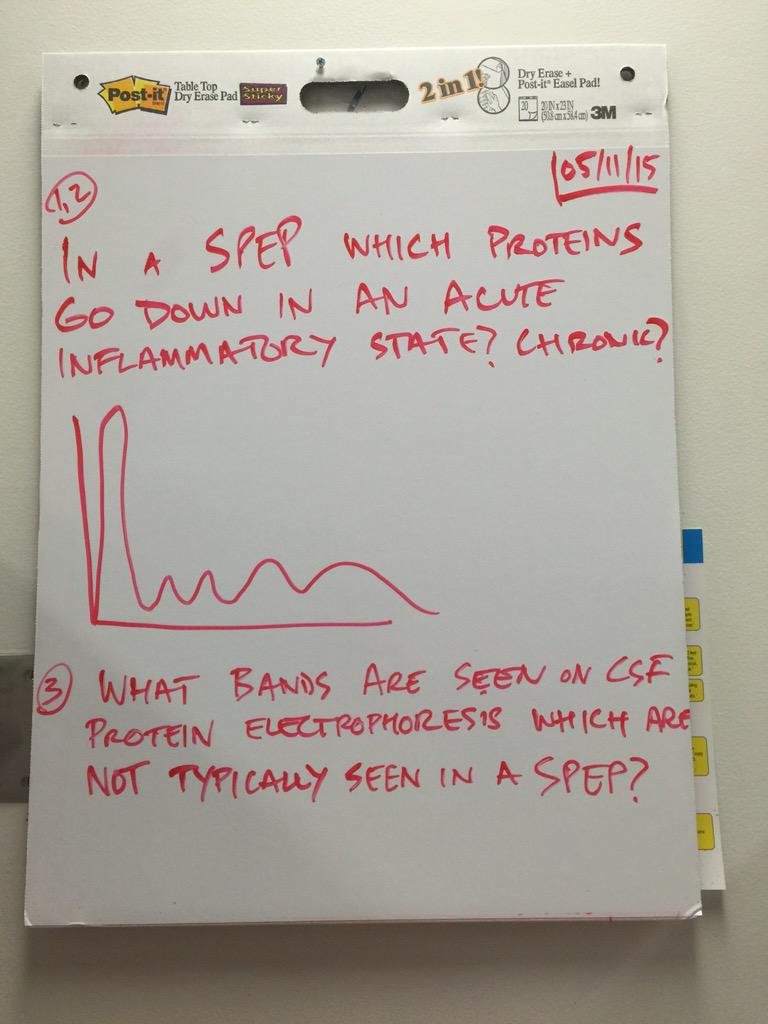 Post-it
Table Top
Dry Erase Pad
Super
Sticky
2 in 1!
Dry Erase +
Post-it® Easel Pad!
20
20 IN x 23 IN
(50.8 cm x 58.4 cm)
3M
05/11/15
1,2
IN A SPEP WHICH PROTEINS
GO DOWN IN AN ACUTE
INFLAMMATORY STATE? CHRONIC?
3 WHAT BANDS ARE SEEN ON CSF
PROTEIN ELECTROPHORESIS WHICH ARE
NOT TYPICALLY SEEN IN A SPEP?